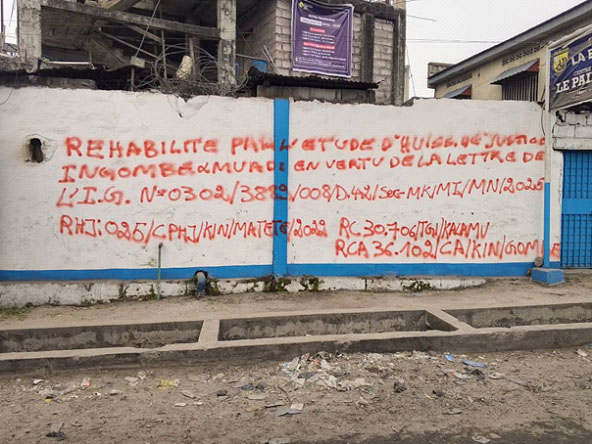 LA B
LE PAL
REHABILITE PAR L'ETUDE D'HUISS. DE JUSTICE
INGOMBE & MUADI EN VERTU DE LA LETTRE DE
L'I.G. N=0302/3889/008/D.42/SEG-MK/MI/MN/2025
RHJ:025/CPHJ/KIN/MATETE/2022 RC.30.706/TGI/KALAMU
RCA 36.102/CA/KIN/GOMBE